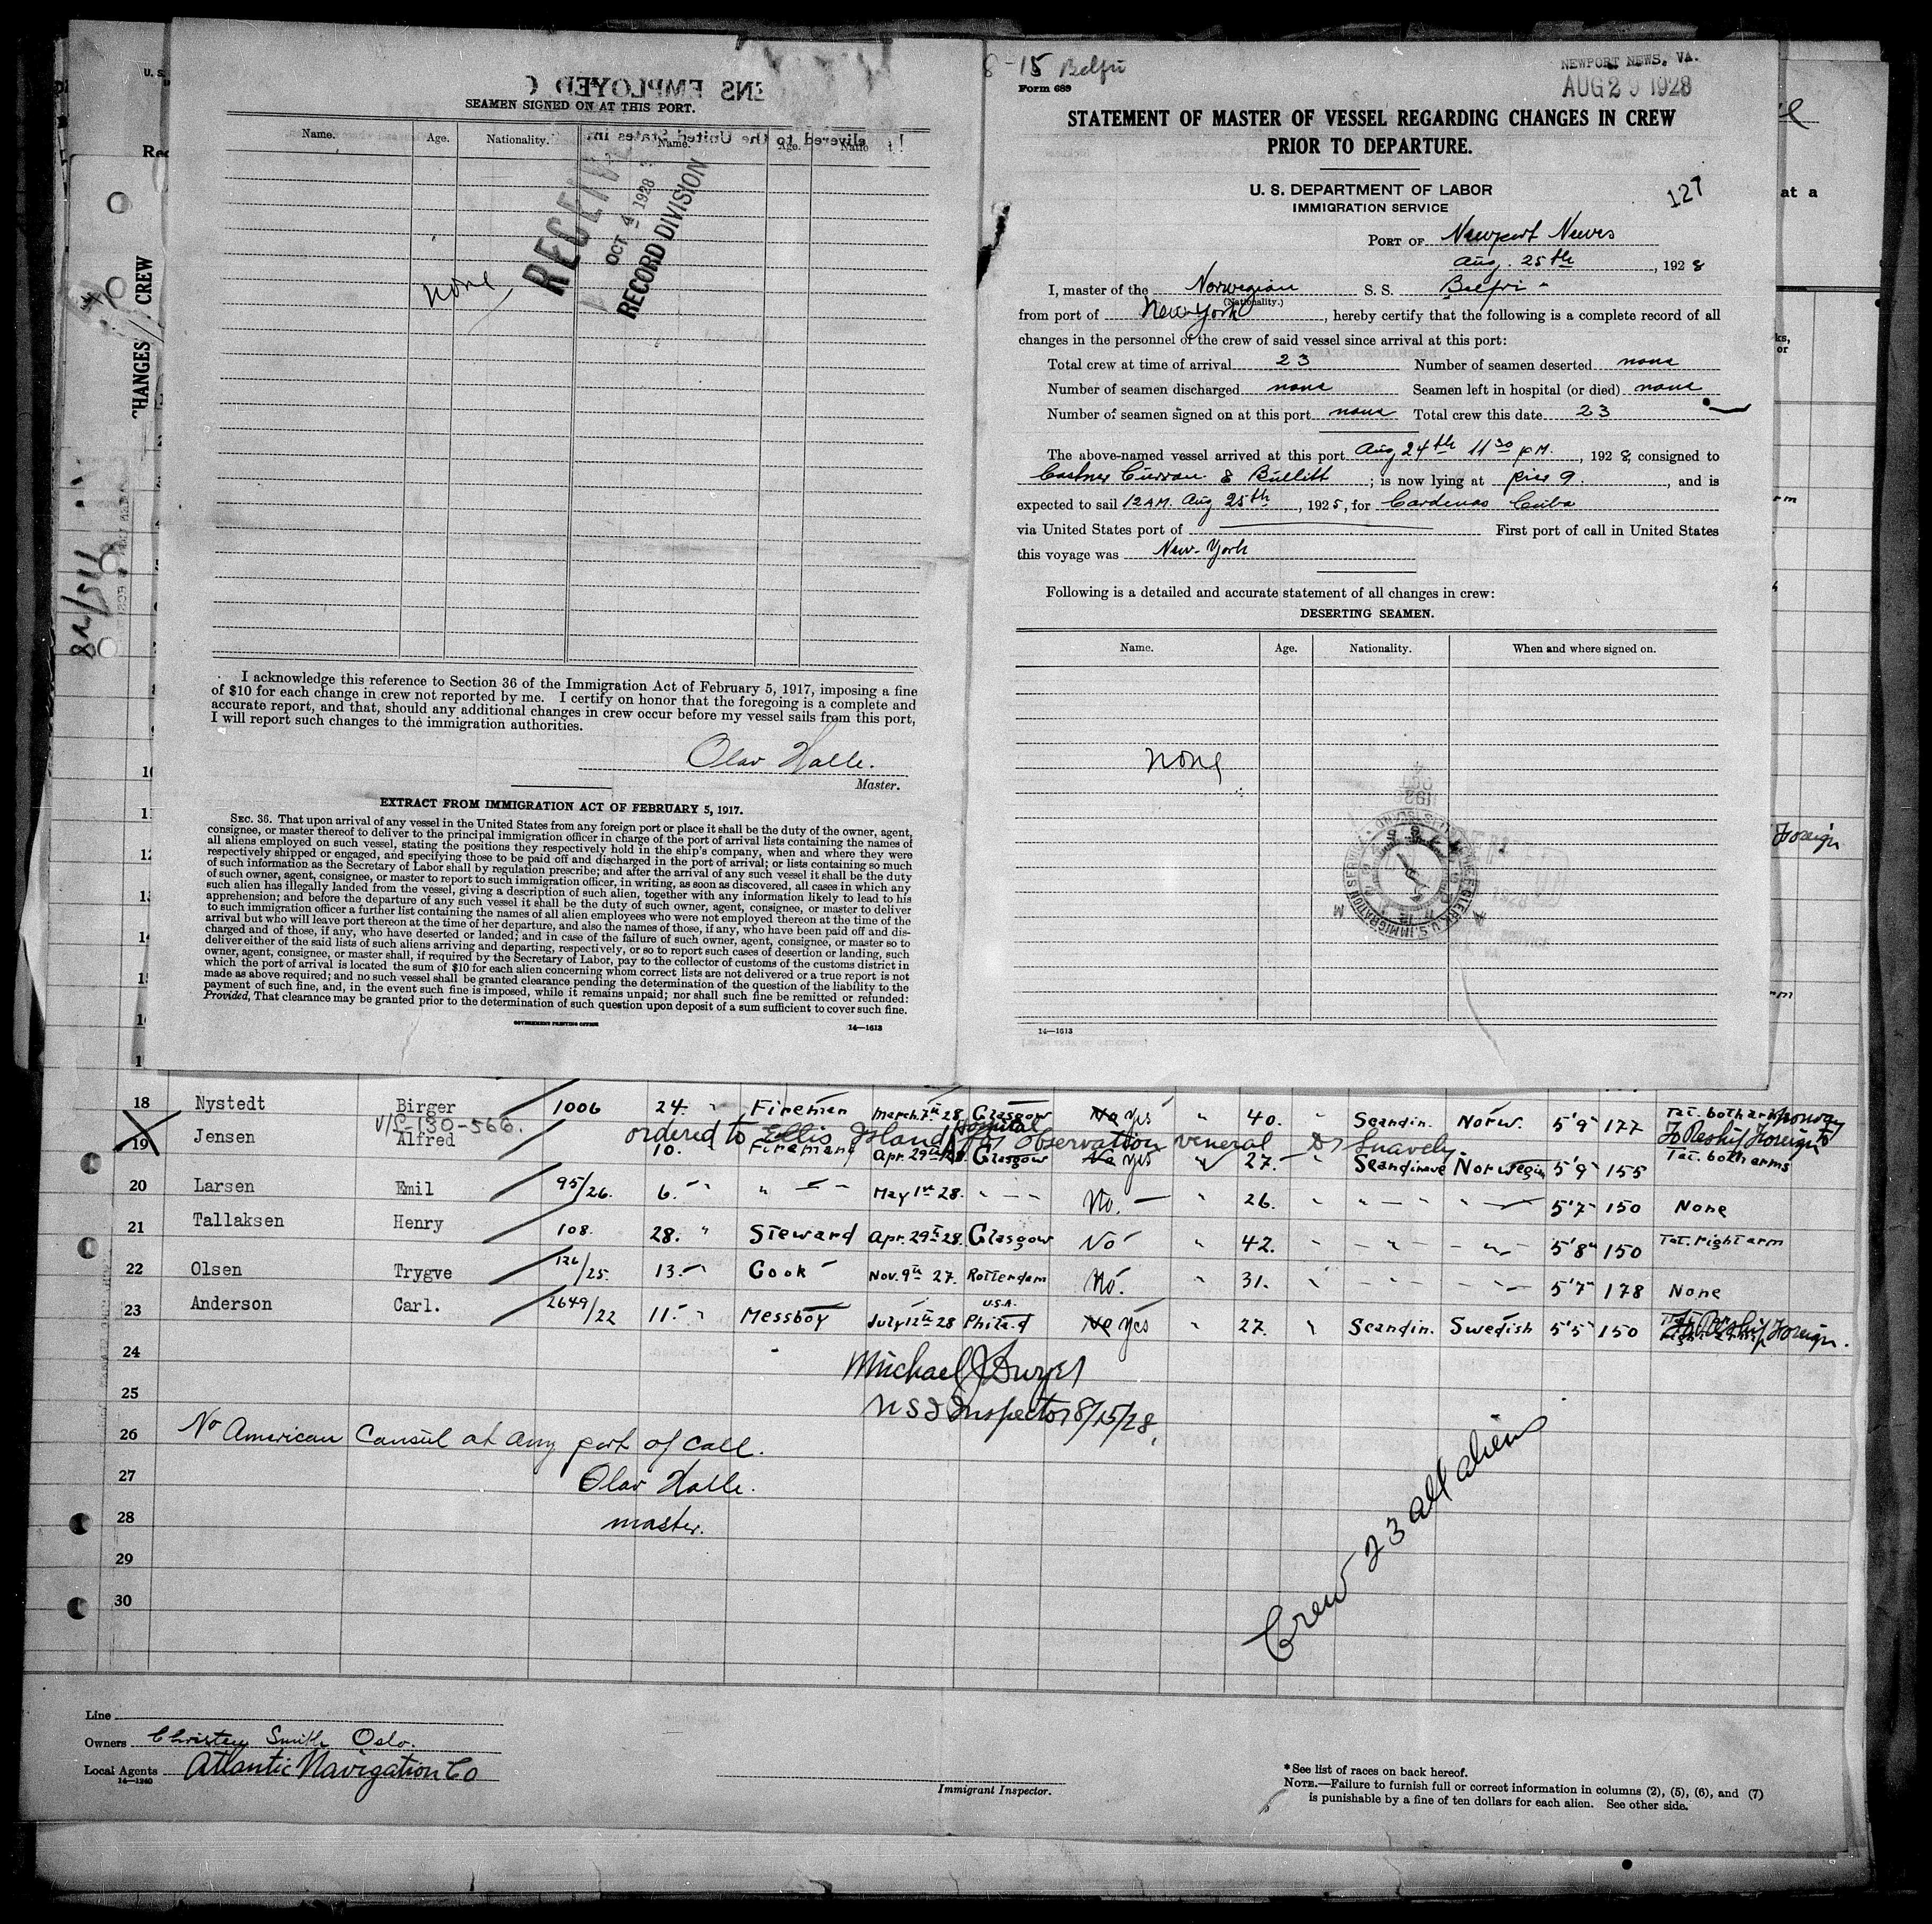 SEAMEN SIGNED ON AT THIS PORT.
Name. Age. Nationality. Name. Age.
none
RECEIVED
OCT 4 1928
RECORD DIVISION
I acknowledge this reference to Section 36 of the Immigration Act of February 5, 1917, imposing a fine
of $10 for each change in crew not reported by me. I certify on honor that the foregoing is a complete and
accurate report, and that, should any additional changes in crew occur before my vessel sails from this port,
I will report such changes to the immigration authorities.
Olav Halle.
Master.
EXTRACT FROM IMMIGRATION ACT OF FEBRUARY 5, 1917.
SEC. 36. That upon arrival of any vessel in the United States from any foreign port or place it shall be the duty of the owner, agent,
consignee, or master thereof to deliver to the principal immigration officer in charge of the port of arrival lists containing the names of
all aliens employed on such vessel, stating the positions they respectively hold in the ship's company, when and where they were
respectively shipped or engaged, and specifying those to be paid off and discharged in the port of arrival; or lists containing so much
of such information as the Secretary of Labor shall by regulation prescribe; and after the arrival of any such vessel it shall be the duty
of such owner, agent, consignee, or master to report to such immigration officer, in writing, as soon as discovered, all cases in which any
such alien has illegally landed from the vessel, giving a description of such alien, together with any information likely to lead to his
apprehension; and before the departure of any such vessel it shall be the duty of such owner, agent, consignee, or master to deliver
to such immigration officer a further list containing the names of all alien employees who were not employed thereon at the time of the
arrival but who will leave port thereon at the time of her departure, and also the names of those, if any, who have been paid off and dis-
charged and of those, if any, who have deserted or landed; and in case of the failure of such owner, agent, consignee, or master so to
deliver either of the said lists of such aliens arriving and departing, respectively, or so to report such cases of desertion or landing, such
owner, agent, consignee, or master shall, if required by the Secretary of Labor, pay to the collector of customs of the customs district in
which the port of arrival is located the sum of $10 for each alien concerning whom correct lists are not delivered or a true report is not
made as above required; and no such vessel shall be granted clearance pending the determination of the question of the liability to the
payment of such fine, and, in the event such fine is imposed, while it remains unpaid; nor shall such fine be remitted or refunded:
Provided, That clearance may be granted prior to the determination of such question upon deposit of a sum sufficient to cover such fine.
GOVERNMENT PRINTING OFFICE 14—1613
8-15 Belfri
Form 689
NEWPORT NEWS, VA.
AUG 29 1928
STATEMENT OF MASTER OF VESSEL REGARDING CHANGES IN CREW
PRIOR TO DEPARTURE.
U. S. DEPARTMENT OF LABOR
IMMIGRATION SERVICE
127
PORT OF Newport News
Aug. 25th, 1928
I, master of the Norwegian S. S. Belfri
(Nationality.)
from port of New York, hereby certify that the following is a complete record of all
changes in the personnel of the crew of said vessel since arrival at this port:
Total crew at time of arrival 23 Number of seamen deserted none
Number of seamen discharged none Seamen left in hospital (or died) none
Number of seamen signed on at this port none Total crew this date 23
The above-named vessel arrived at this port Aug 24th 11 30 P.M., 1928, consigned to
Castner Curran & Bullitt; is now lying at pier 9, and is
expected to sail 12 AM. Aug 25th, 1925, for Cardenas Cuba
via United States port of First port of call in United States
this voyage was New-York
Following is a detailed and accurate statement of all changes in crew:
DESERTING SEAMEN.
Name. Age. Nationality. When and where signed on.
none
14—1613
CHANGES CREW
82/511
at a
Foreign
10
11
12
13
14
15
18 Nystedt Birger 1006 24. " Fireman March 7th 28 Glasgow No Yes " 40. " Scandin. Norw. 5'9" 177 Tat. both arms
V/S-130-566.
ordered to Ellis Island Hospital for observation veneral Dr Snavely. To Reship Foreign
19 Jensen Alfred 10. Fireman Apr. 29th 28 Glasgow No Yes 27. " Scandinave Norwegin 5'9" 155 Tat. both arms
20 Larsen Emil 95/26. 6. " " May 1st 28. " No. " 26. " " " 5'7" 150 None
21 Tallaksen Henry 108. 28. " Steward Apr. 29th 28. Glasgow No " 42. " " " 5'8" 150 Tat. right arm
22 Olsen Trygve 126/25. 13. " Cook Nov. 9th 27. Rotterdam No. " 31. " " " 5'7" 178 None
23 Anderson Carl. 2649/22 11. " Messboy July 12th 28 U.S.A. Philad No Yes " 27. " Scandin. Swedish 5'5" 150 To Reship Foreign.
24
Michael J Dwyer
25
U S I Inspector 8/15/28.
26 No American Consul at any port of call.
27 Olav Halle.
28 master.
29
30
Crew 23 all aliens
Line
Owners Christen Smith Oslo.
Local Agents Atlantic Navigation Co
14—1240
Immigrant Inspector.
*See list of races on back hereof.
NOTE.—Failure to furnish full or correct information in columns (2), (5), (6), and (7)
is punishable by a fine of ten dollars for each alien. See other side.